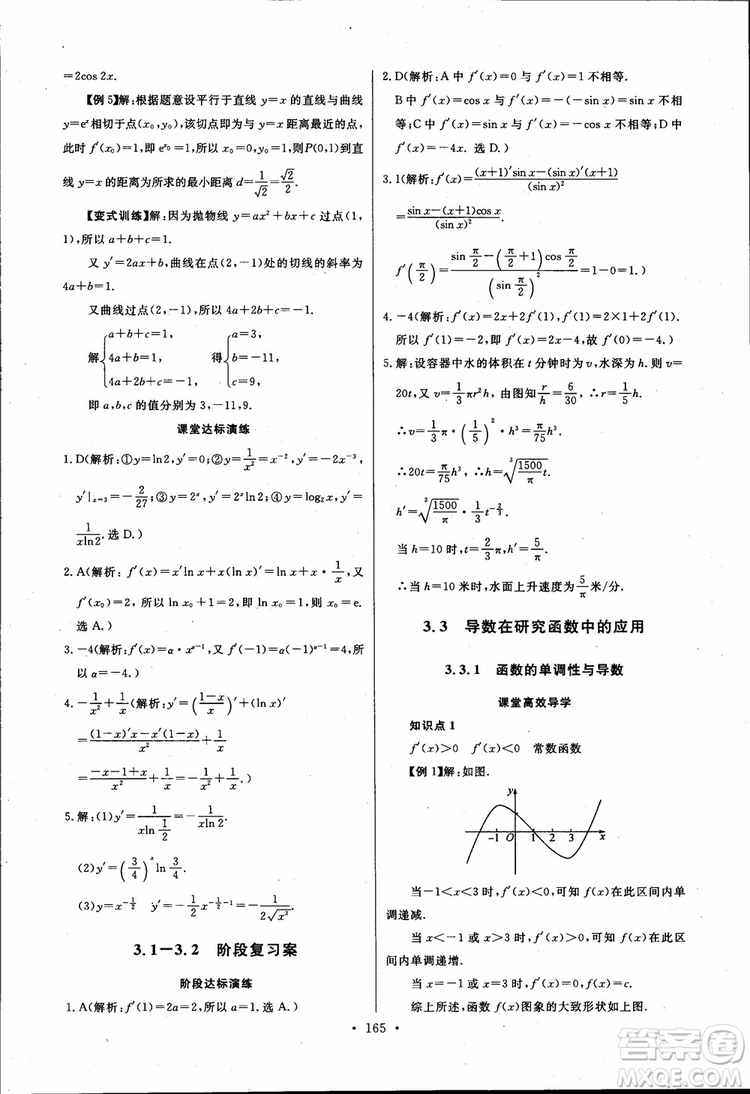 =2cos 2x.
【例 5】解:根据题意设平行于直线 y=x 的直线与曲线
y=eˣ相切于点(x₀,y₀),该切点即为与 y=x 距离最近的点,
此时 f′(x₀)=1,即 e^{x₀}=1,所以 x₀=0,y₀=1,则 P(0,1)到直
线 y=x 的距离为所求的最小距离 d=1/√2=√2/2.
【变式训练】解:因为抛物线 y=ax²+bx+c 过点(1,
1),所以 a+b+c=1.
又 y′=2ax+b,曲线在点(2,-1)处的切线的斜率为
4a+b=1.
又曲线过点(2,-1),所以 4a+2b+c=-1.
解{a+b+c=1, 4a+b=1, 4a+2b+c=-1, 得{a=3, b=-11, c=9.
即 a,b,c 的值分别为 3,-11,9.
课堂达标演练
1. D(解析:①y=ln2,y′=0;②y=1/x²=x⁻²,y′=-2x⁻³,
y′|ₓ₌₃=-2/27;③y=2ˣ,y′=2ˣln2;④y=log₂x,y′=
1/(xln2).选 D.)
2. A(解析:f′(x)=x′ln x+x(ln x)′=ln x+x·1/x,又
f′(x₀)=2,所以 ln x₀+1=2,即 ln x₀=1,所以 x₀=e.
选 A.)
3. -4(解析:f′(x)=α·x^{α-1},又 f′(-1)=α(-1)^{α-1}=-4,所
以 α=-4.)
4. -1/x²+1/x(解析:y′=((1-x)/x)′+(ln x)′
=((1-x)′x-x′(1-x))/x²+1/x
=(-x-1+x)/x²+1/x=-1/x²+1/x.)
5. 解:(1)y′=1/(xln 1/2).
(2)y′=(3/4)ˣln 3/4.
(3)y=x^{-1/2} y′=-1/2x^{-1/2-1}=-1/(2√x³).
3.1—3.2 阶段复习案
阶段达标演练
1. A(解析:f′(1)=2a=2,所以 a=1.选 A.)
2. D(解析:A 中 f′(x)=0 与 f′(x)=1 不相等.
B 中 f′(x)=cos x 与 f′(x)=-(-sin x)不相
等;C 中 f′(x)=sin x 与 f′(x)=-sin x 不相等;D
中 f′(x)=-4x.选 D.)
3. 1(解析:f′(x)=((x+1)′sin x-(sin x)′(x+1))/(sin x)²
=(sin x-(x+1)cos x)/(sin x)²
f′(π/2)=(sin π/2-(π/2+1)cos π/2)/(sin π/2)²=1-0=1.)
4. -4(解析:f′(x)=2x+2f′(1),f′(1)=2×1+2f′(1).
所以 f′(1)=-2,即 f′(x)=2x-4.故 f′(0)=-4.)
5. 解:设容器中水的体积在 t 分钟时为 v,水深为 h.则 v=
20t,又 v=1/3πr²h,由图知r/h=6/30,∴r=1/5h.
∴v=1/3π·(1/5)²·h³=π/75h³.
∴20t=π/75h³,∴h=³√(1500/π)t.
h′=³√(1500/π)·1/3t^{-2/3}.
当 h=10 时,t=2/3π,h′=5/π.
∴当 h=10 米时,水面上升速度为5/π米/分.
3.3 导数在研究函数中的应用
3.3.1 函数的单调性与导数
课堂高效导学
知识点 1
f′(x)>0 f′(x)<0 常数函数
【例 1】解:如图.
y
-1 O 1 2 3 x
当-1<x<3 时,f′(x)<0,可知 f(x)在此区间内单
调递减.
当 x<-1 或 x>3 时,f′(x)>0,可知 f(x)在此区
间内单调递增.
当 x=-1 或 x=3 时,f′(x)=0,可知 f(x)=c.
综上所述,函数 f(x)图象的大致形状如上图.
· 165 ·
答案圈
MXQE.COM